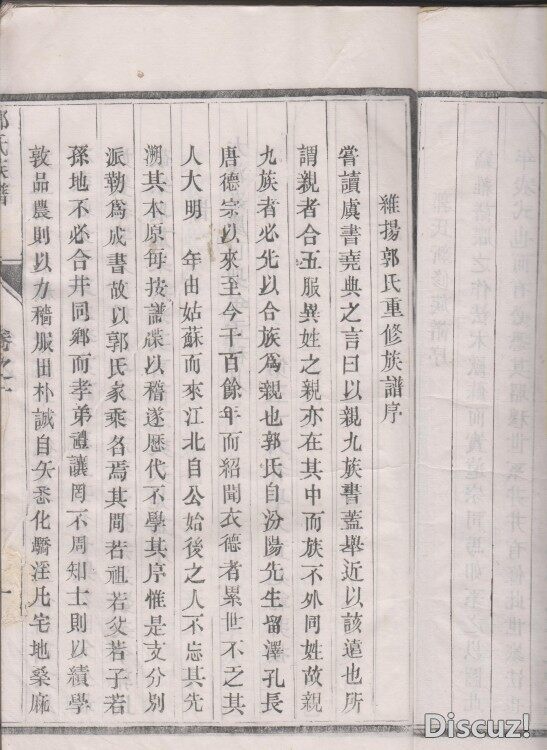 維揚郭氏重修族譜序
嘗讀虞書堯典之言曰以親九族書蓋舉近以該遠也所
謂親者合五服異姓之親亦在其中而族不外同姓故親
九族者必先以合族為親也郭氏自汾陽先生畱澤孔長
唐德宗以來至今千百餘年而紹聞衣德者累世不乏其
人大明 年由姑蘇而來江北自公始後之人不忘其先
溯其木原每按譜牒以稽遂歷代不學其序惟是支分別
派勒為成書故以郭氏家乘名焉其間若祖若父若子若
孫地不必合井同鄉而孝弟禮讓罔不周知士則以績學
敦品農則以力穡服田朴誠自矢悉化驕淫凡宅地桑麻
郭氏族譜
卷之一
一
Discuz!